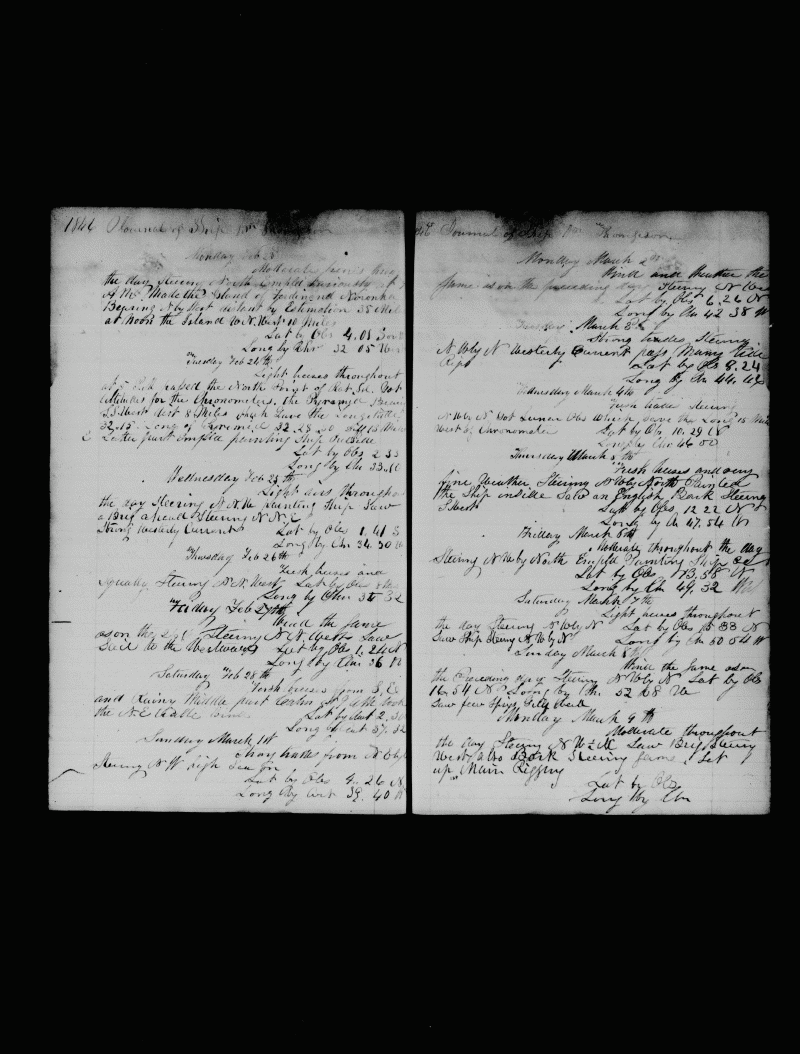 1846 Journal of Ship Wm Thompson
Monday Feb 23
Moderate
the day Steering North Employ Variously at
A M Made the Island of Noronha
Bearing N by West distant by Estimation 35 Miles
at Noon the Island W N West 10 Miles
Lat by Obs 4,01 South
Long by Chr 32 05 West
Tuesday Feb 24th
Light breses throughout
at passed the North Point of
Altitudes for the Chronometers. the Pyramid Bearing
West dist 8 Miles Gave the Longitude
32,15. Long of Pyramid 32 28 30
Latter part Employ painting Ship outside
Lat by Obs 2 33
Long by Chr 33.10
Wednesday Feb 25th
Light airs throughout
the day Steering N.N.W painting Ship Saw
a Brig ahead Steering N N E
Strong Westerly Current Lat by Obs 1,41 S
Long by Chr 34.30 W
Thursday Feb 26th
Fresh breses and
Squally Steering N.N. West Lat by
Long by Chr 35 32
Friday Feb 27th
Wind the Same
as on the Steering N N West Saw
Sail to the Westward Lat by Obs 1,24 N
Long by Chr 36 12
Saturday Feb 28th
Fresh breses from S.E
and Rainy Middle part took
the N.E trade wind Lat by Acct 2,30
Long by acct 37.52
Sunday March 1st
Strong trades from N E by
Steering N W high Sea on
Lat by Obs 4. 26 N
Long by Acct 39. 40 W
Journal of Ship Wm Thompson
Monday March 2nd
Wind and Weather the
Same as on the preceding days Steering N West
Lat by Obs 6.26 N
Long by Chr 42 38 W
Tuesday March 3
Strong trades Steering
N W by N Westerly Current pass Many tide
Rips Lat by Obs 8.24
Long by Chr 44.
Wednesday March 4th
Fresh trade Steering
N W by N Got Lunar Obs Which gave the Long 15 Miles
West of Chronometer Lat by Obs 10.29 N
Long by Chr 46 00
Thursday March 5th
Fresh breses and very
fine Weather Steering N W by North Painted
the Ship inside Saw an English Bark Steering
S West Lat by Obs, 12 22 N
Long by Ch 47.54 W
Friday March 6th
Moderate throughout the day
Steering N W by North Employ Painting Ship
Lat by Obs 13,58 N
Long by Ch 49,32
Saturday March 7th
Light breses throughout
the day Steering N W by N Lat by Obs 15 33 N
Saw Ship Steering N W by N Long by Ch 50 54 W
Sunday March 8th
Wind the Same as on
the Preceding days Steering N W by N Lat by Obs
16.54 N Long by Chr. 52 08 W
Saw few Sprigs Gulf Weed
Monday March 9th
Moderate throughout
the day Steering N W Saw Brig Steering
West also Bark Steering Same. Set
up Main Rigging
Lat by Obs
Long by Chr